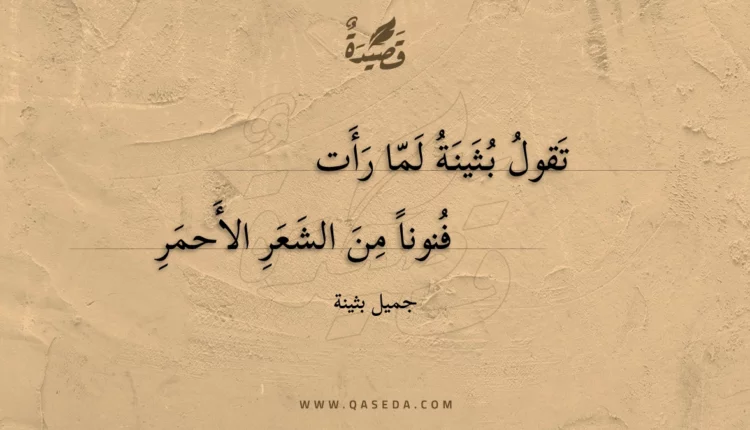 قَصِيدَةٌ
تَقولُ بُثَينَةُ لَمّا رَأَت
فُنوناً مِنَ الشَعَرِ الأَحمَرِ
جميل بثينة
WWW.QASEDA.COM